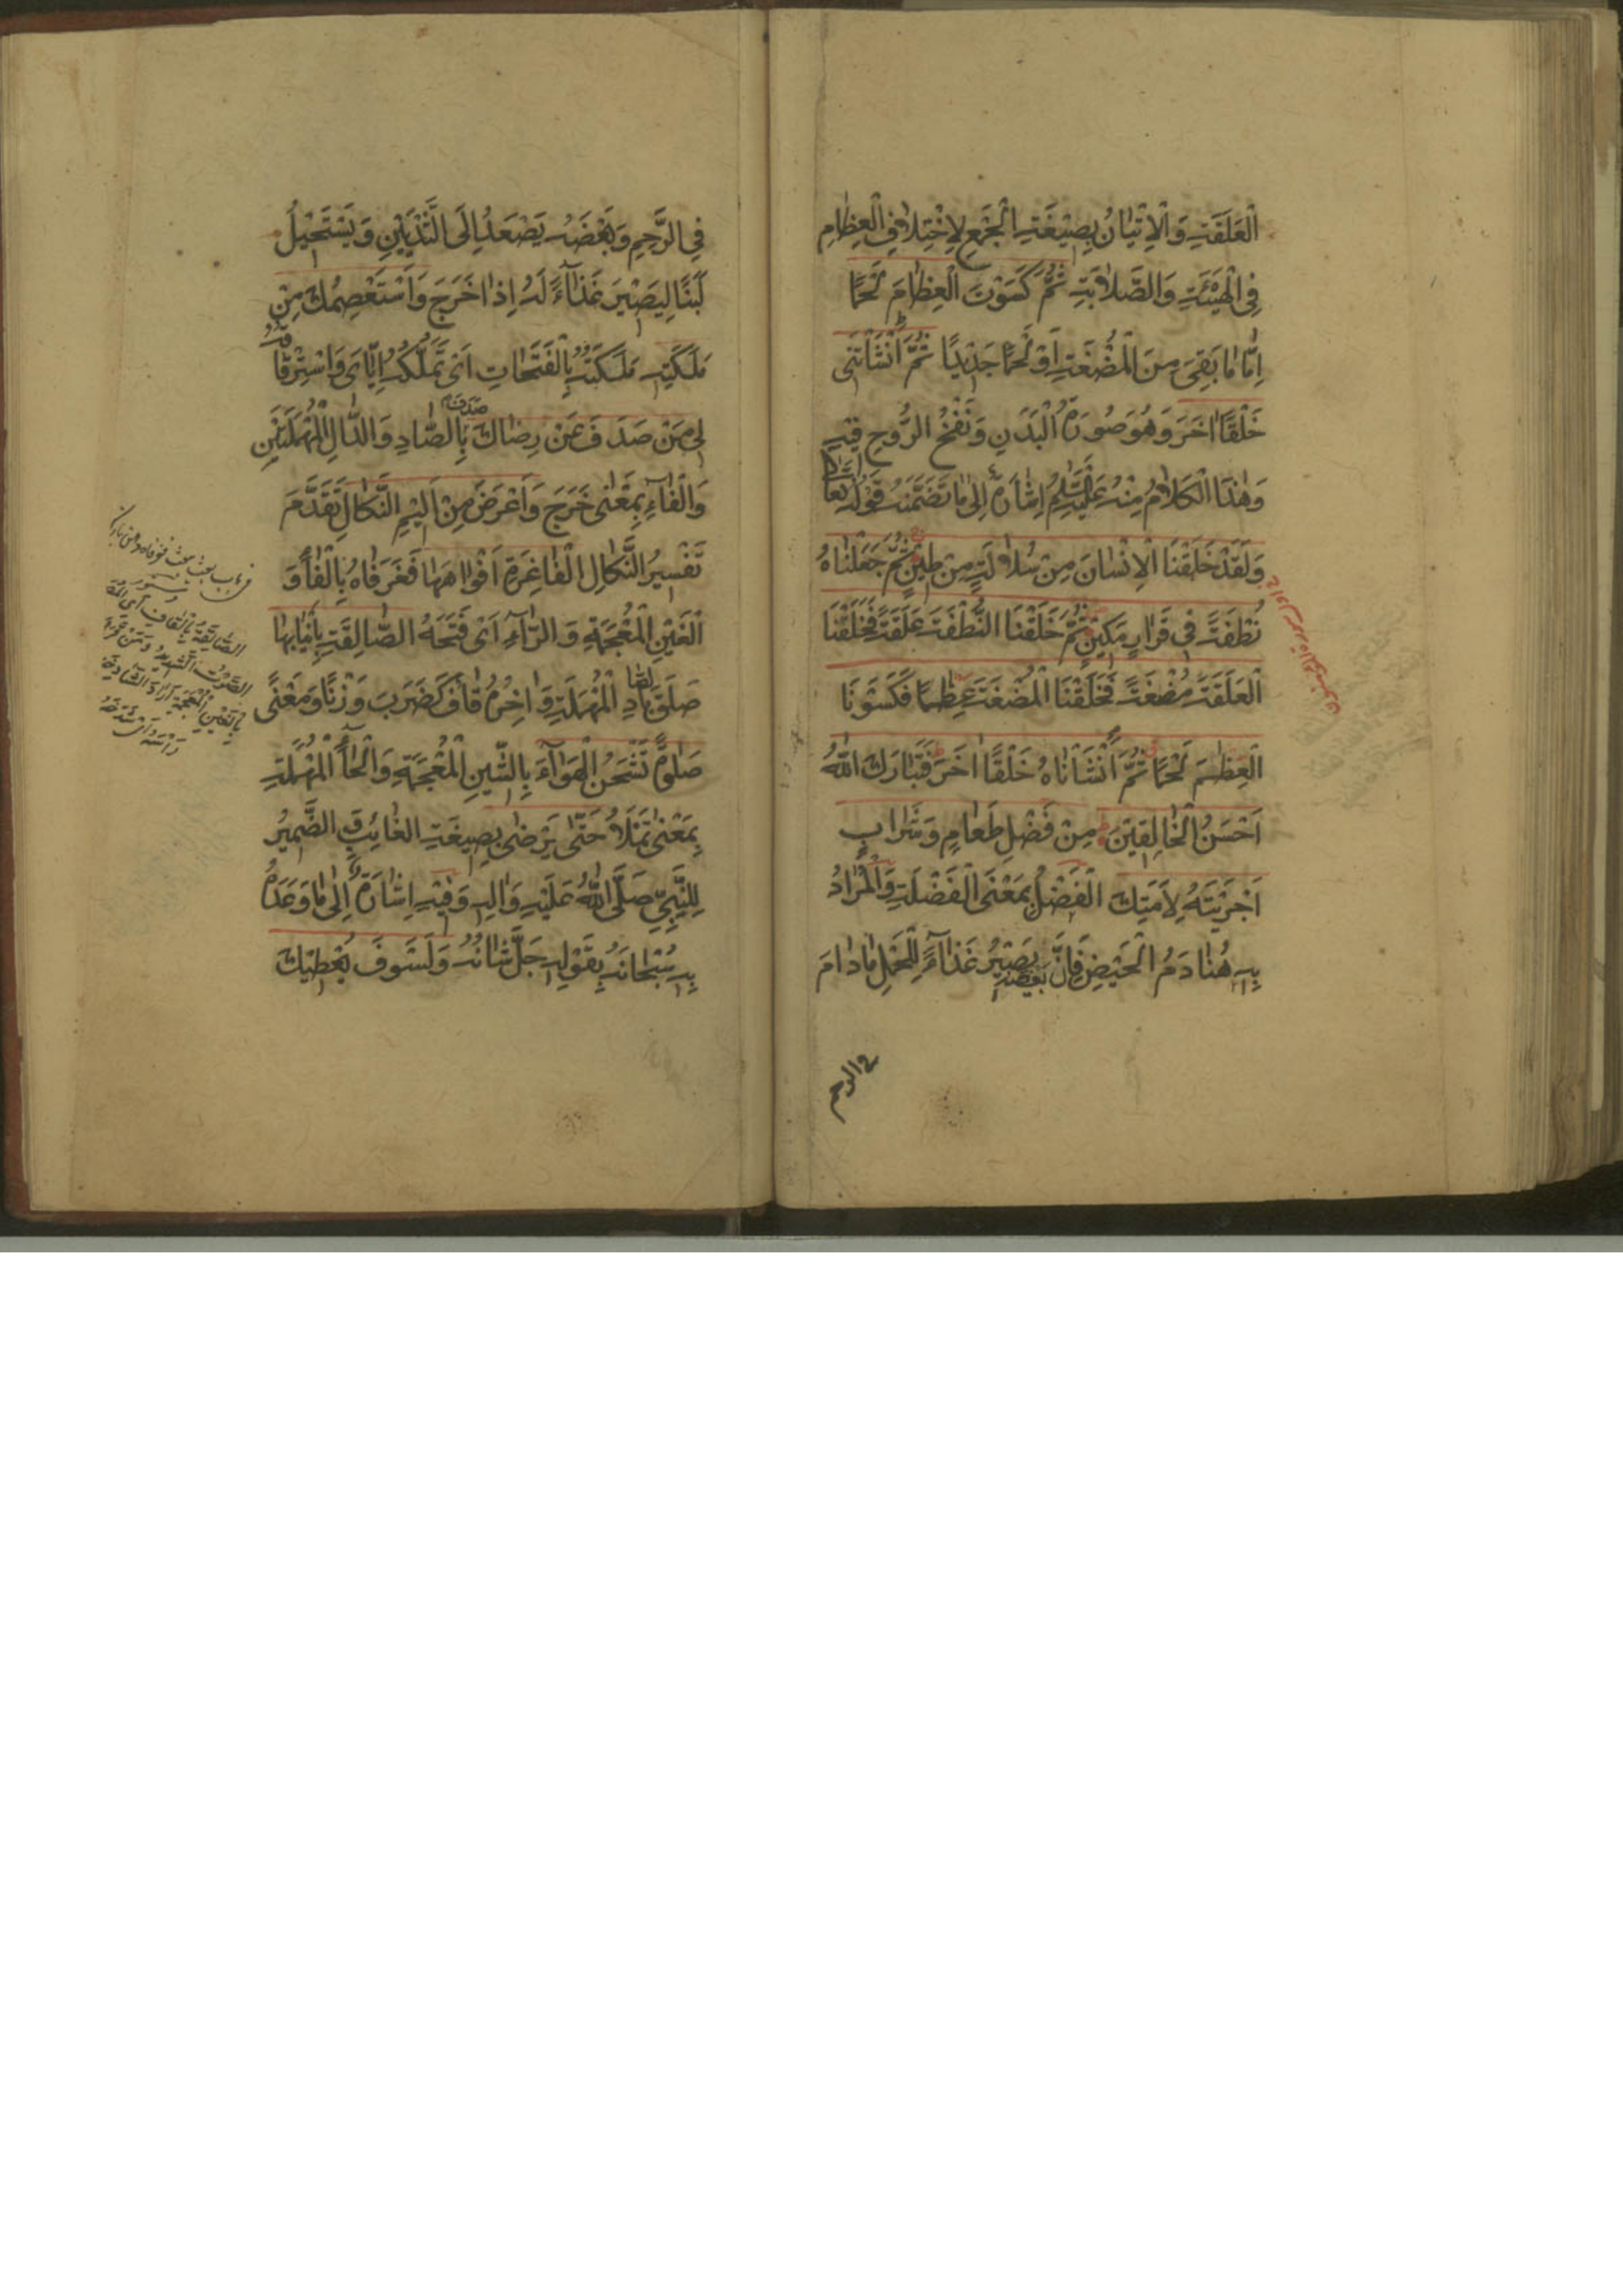 الْعَلَقَةِ وَالْاِتْيٰانُ بِصِيْغَةِ الْجَمْعِ لِاخْتِلافِ الْعِظٰامِ
فِى الْهَيْئَةِ وَالصَّلابَةِ ثُمَّ كَسَوْتَ الْعِظٰامَ لَحْمًا
اِمّٰا مٰا بَقِىَ مِنَ الْمُضْغَةِ اَوْ لَحْمًا جَدْيدًا ثُمَّ اَنْشَاْتَنى
خَلْقًا اٰخَرَ وَهُوَ صُورَةُ الْبَدَنِ وَنَفْخُ الرُّوحِ فيهِ
وَهٰذَا الْكَلامُ مِنْهُ عَلَيْهِ السَّلٰمُ اِشٰارَةٌ اِلىٰ مٰا تَضَمَّنَهُ قَوْلُهُ تَعٰالىٰ
وَلَقَدْ خَلَقْنَا الْاِنْسٰانَ مِنْ سُلٰالَةٍ مِنْ طينٍ ثُمَّ جَعَلْنٰاهُ
نُطْفَةً فى قَرٰارٍ مَكينٍ ثُمَّ خَلَقْنَا النُّطْفَةَ عَلَقَةً فَخَلَقْنَا
الْعَلَقَةَ مُضْغَةً فَخَلَقْنَا الْمُضْغَةَ عِظٰمًا فَكَسَوْنَا
الْعِظٰمَ لَحْمًا ثُمَّ اَنْشَاْنٰاهُ خَلْقًا اٰخَرَ فَتَبٰارَكَ اللّٰهُ
اَحْسَنُ الْخٰالِقينَ مِنْ فَضْلِ طَعٰامٍ وَشَرٰابٍ
اَجْرَيْتَهُ لِاَمَتِكَ الْفَضْلُ بِمَعْنَى الْفَضْلَةِ وَالْمُرٰادُ
بِهِ هُنٰا دَمُ الْحَيْضِ فَاِنَّ بَعْضَهُ يَصيرُ غَذٰاءً لِلْحَمْلِ مٰا دٰامَ
فى الرحم
فِى الرَّحِمِ وَبَعْضَهُ يَصْعَدُ اِلَى الثَّدْيَيْنِ وَيَسْتَحيلُ
لَبَنًا لِيَصيرَ غَذٰاءً لَهُ اِذٰا خَرَجَ وَاَسْتَعْصِمُكَ مِنْ
مَلَكَتِهِ مَلَكَتُهُ بِالْفَتَحٰاتِ اَىْ تَمَلُّكُهُ اِيّٰاىَ وَاسْتِرْقٰاقُهُ
لى مَنْ صَدَفَ عَنْ رِضٰاكَ صَدَفَ بِالصّٰادِ وَالدّٰالِ الْمُهْمَلَتَيْنِ
وَالْفٰاءِ بِمَعْنىٰ خَرَجَ وَاَعْرَضَ مِنْ اَليمِ النَّكٰالِ تَقَدَّمَ
تَفْسيرُ النَّكٰالِ الْفٰاغِرَةِ اَفْوٰاهَهٰا فَغَرَ فٰاهُ بِالْفٰاءِ وَ
الْغَيْنِ الْمُعْجَمَةِ وَ الرّٰاءِ اَىْ فَتَحَهُ الصّٰالِقَةِ بِاَنْيٰابِهٰا
صَلَقَ بِالصّٰادِ الْمُهْمَلَةِ وَاٰخِرُهُ قٰافٌ كَضَرَبَ وَزْنًا وَمَعْنًى
صَلٰوةً تَشْحَنُ الْهَوٰاءَ بِالشّينِ الْمُعْجَمَةِ وَالْحٰاءِ الْمُهْمَلَةِ
بِمَعْنىٰ تَمْلَاُ حَتّٰى يَرْضىٰ بِصيغَةِ الْغٰائِبِ وَ الضَّميرُ
لِلنَّبِىِّ صَلَّى اللّٰهُ عَلَيْهِ وَاٰلِهِ وَفيهِ اِشٰارَةٌ اِلىٰ مٰا وَعَدَهُ
بِهِ سُبْحٰانَهُ بِقَوْلِهِ جَلَّ شَاْنُهُ وَلَسَوْفَ يُعْطيكَ
الصّٰالِقَةِ بِالْقٰافِ اَىِ
الصَّوْتُ الشَّديدُ وَمَنْ قَرَءَ
بِالْغَيْنِ الْمُعْجَمَةِ اَرٰادَ الشّٰادِخَةَ